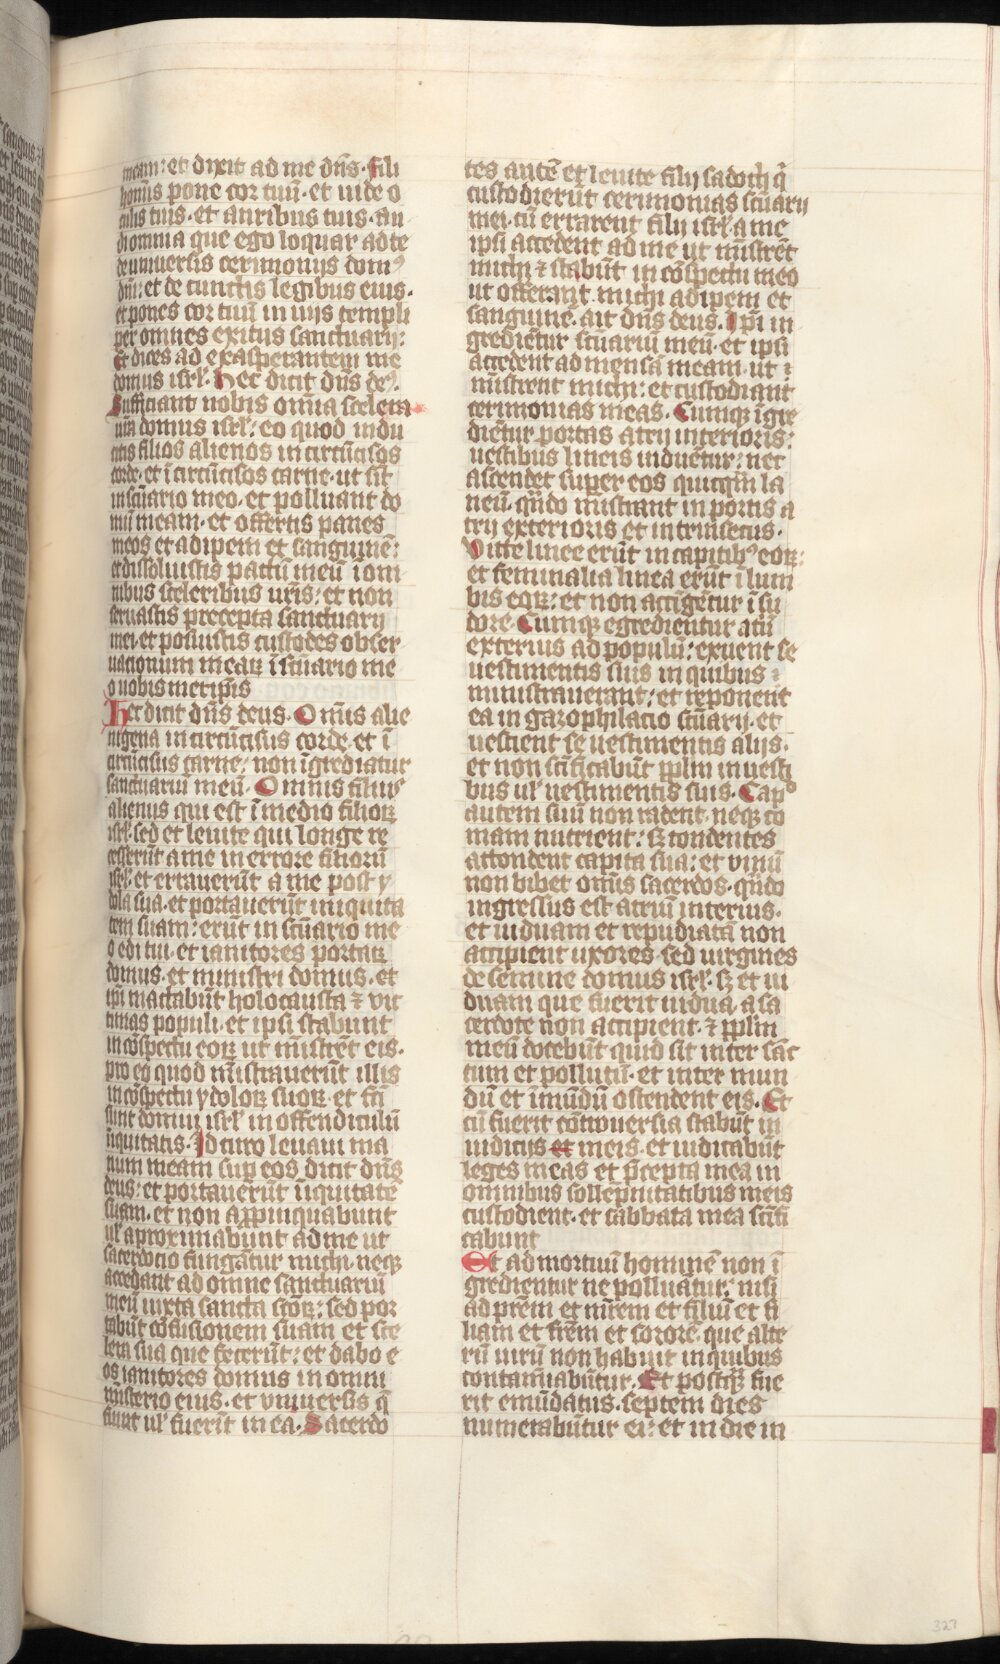 meam: et dixit ad me dn̄s. Fili
hominis pone cor tuū. et uide o
culis tuis. et auribus tuis. au
di omnia que ego loquar ad te
de uniuersis cerimonijs domꝰ
dn̄i: et de cunctis legibus eius.
et pones cor tuū in uijs templi
per omnes exitus sanctuarij:
Et dices ad exasperantem me
domus isrl̄. Hec dicit dn̄s deꝰ.
Sufficiant uobis om̄ia scelera
ur̄a domus isrl̄: eo quod indu
citis filios alienos incircūcisos
corde. et īcircūcisos carne. ut sīt
in scūario meo. et polluant do
mū meam. et offertis panes
meos et adipem et sanguinē:
et dissoluistis pactū meū ī om
nibus sceleribus ur̄is: et non
seruastis precepta sanctuarij
mei. et posuistis custodes obser
uacionum meaꝝ ī scūario me
o uobismetipīs
Hec dicit dn̄s deus. Om̄is alie
nigena incircūcisus corde. et ī
circūcisus carne: non īgrediatur
sanctuariū meū. Omnis filius
alienus qui est ī medio filioꝝ
isrl̄. sed et leuite qui longe re
cesserūt a me in errore filiorū
isrl̄. et errauerūt a me post y
dola sua. et portauerūt iniquita
tem suam: erūt in scūario me
o editui. et ianitores portaꝝ
domus. et ministri domus. et
ipī mactabūt holocausta ⁊ vic
timas populi. et ipsi stabunt
in cōspectu eoꝝ ut mīstrēt eis.
pro eo quod mīstrauerūt illis
in cōspectu ydoloꝝ suoꝝ. et fc̄i
sunt domui isrl̄ in offendiculū
īiquitatis. Idcirco leuaui ma
num meam sup̄ eos dicit dn̄s
deus: et portauerūt īiquitatē
suam. et non appīnquabunt
ul̄ aproximabunt ad me ut
sacerdocio fungātur michi. neqꝫ
accedant ad omne sanctuariū
meū iuxta sancta scōꝝ: sed por
tabūt cōfusionem suam et sce
lera sua que fecerūt: et dabo e
os ianitores domus in omni
mīsterio eius. et vniuersis q̄
fiunt ul̄ fuerīt in ea. Sacerdo
tes autē et leuite filij sadoch q̄
custodierūt cerimonias scūarij
mei. cū errarent filij isrl̄ a me
ipsi accedent ad me ut mīstrēt
michi ⁊ stabūt in cōspectu meo
ut offerant michi adipem et
sanguinē. ait dn̄s deus. Ipī in
gredietur scūariū meū. et ipsi
accedent ad mensā meam. ut
mīstrent michi: et custodiant
cerimonias meas. Cumqꝫ īgre
diētur portas atrij interioris:
uestibus lineis induētur: nec
ascendet super eos quicqm̄ la
neū. qn̄do mīstrant in portis a
trij exterioris et intrinsecus.
Vitte linee erūt in capitibꝰ eoꝝ:
et feminalia linea erūt ī lum
bis eoꝝ: et non accīgētur ī su
dore. Cumqꝫ egredientur atū
exterius ad populū: exuent se
uestimentis suis in quibus
ministrauerant: et reponent
ea in gazophilacio scūarij. et
uestient se uestimentis alijs.
et non scīficabūt ppl̄m in uesti
bus ul̄ uestimentis suis. Capᵒ
autem suū non radent. neqꝫ co
mam nutrient: sꝫ tondentes
attondent capita sua: et vinū
non bibet om̄is sacerdos. qn̄do
ingressus est atriū interius.
et uiduam et repudiatā non
accipient uxores. sed uirgines
de semine domus isrl̄. sꝫ et ui
duam que fuerit uidua. a sa
cerdote non accipient. ⁊ ppl̄m
meū docebūt quid sit inter sāc
tum et pollutū. et inter mun
dū et īmūdū ostendent eis. Et
cū fuerit cōtrouersia stabūt in
iudicijs et meis. et iudicabūt
leges meas et p̄cepta mea in
omnibus sollēpnitatibus meis
custodient. et sabbata mea scīfi
cabunt
Et ad mortuū hominē non ī
gredientur ne polluātur: nisi
ad pr̄em et mr̄em et filiū et fi
liam et fr̄em et sororē. que alte
rū uirū non habuit in quibus
contamīabūtur. Et postqꝫ fue
rit emūdatus. septem dies
numerabūtur ei: et in die in
327